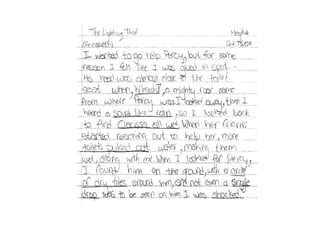 The Lightning Thief
(Annabeth)
I wanted to go help Percy, but for some
reason I felt like I was glued in spot.
His head was almost close to the toilet
seat when, a mighty roar came
from where Percy was. I looked away, then I
heard a sound like rain, so I looked back
to find Clarisse all wet. When her friends
started reaching out to help her, more
toilets puked out water, making them
wet, along with me. When I looked for Percy,
I found him on the ground, with a circle
of dry tiles around him, and not even a single
drop was to be seen on him. I was shocked.